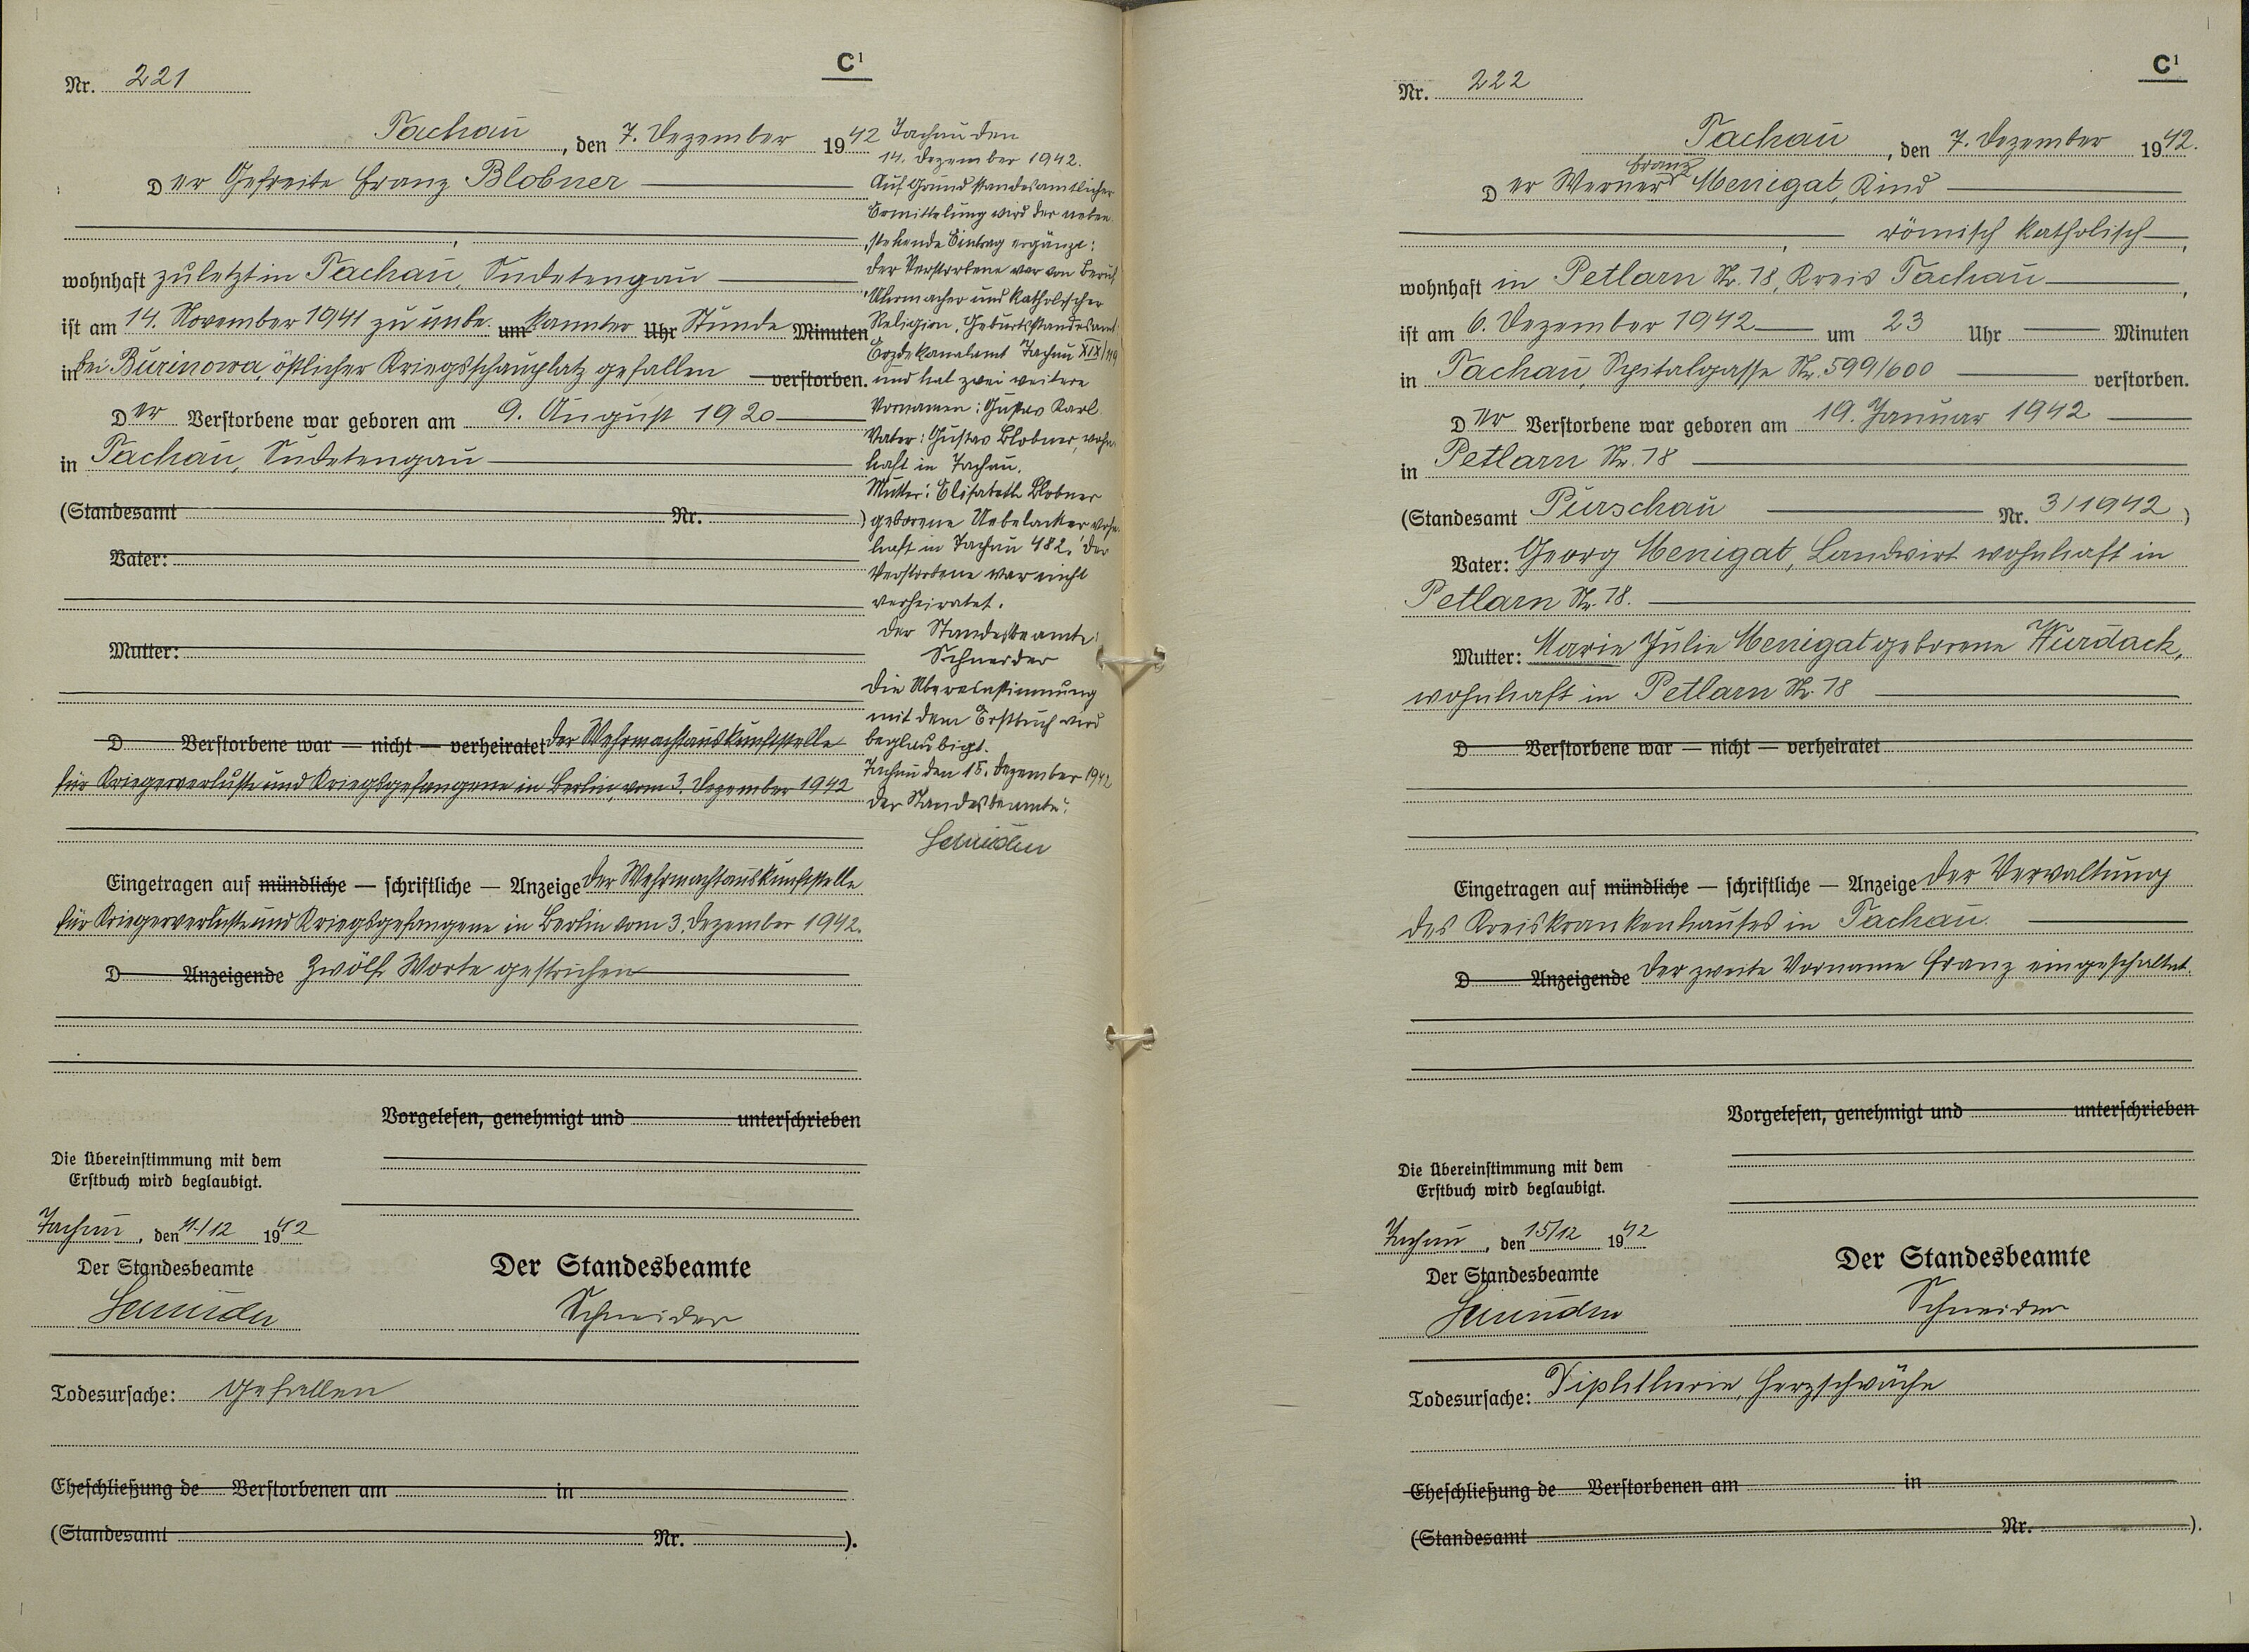 C¹
Nr. 221
Tachau, den 7. Dezember 1942
Der Gefreite Franz Blobner
wohnhaft zuletzt in Tachau, Sudetengau
ist am 14. November 1941 zu unbe- um kannter Uhr Stunde Minuten
in bei Burinowa, östlicher Kriegsschauplatz gefallen verstorben.
Der Verstorbene war geboren am 9. August 1920
in Tachau, Sudetengau
(Standesamt Nr. )
Vater:
Mutter:
D Verstorbene war — nicht — verheiratet der Wehrmachtauskunftstelle
für Kriegerverluste und Kriegsgefangene in Berlin, vom 3. Dezember 1942
Eingetragen auf mündliche — schriftliche — Anzeige der Wehrmachtauskunftstelle
für Kriegerverluste und Kriegsgefangene in Berlin vom 3. Dezember 1942.
D Anzeigende Zwölf Worte gestrichen
Vorgelesen, genehmigt und unterschrieben
Die Übereinstimmung mit dem
Erstbuch wird beglaubigt.
Tachau, den /12 1942
Der Standesbeamte
Schneider
Der Standesbeamte
Schneider
Todesursache: Gefallen
Eheschließung de Verstorbenen am in
(Standesamt Nr. ).
Tachau den
14. Dezember 1942.
Auf Grund standesamtlicher
Ermittelung wird der neben-
stehende Eintrag ergänzt:
Der Verstorbene war von Beruf
Uhrmacher und katholischer
Religion, Geburtsstandesamt
Erzdekanalamt Tachau XIX/119
und hat zwei weitere
Vornamen: Gustav Karl.
Vater: Gustav Blobner, wohn-
haft in Tachau.
Mutter: Elisabeth Blobner
geborene Uebelacker wohn-
haft in Tachau 482. Der
Verstorbene war nicht
verheiratet.
Der Standesbeamte:
Schneider
Die Übereinstimmung
mit dem Erstbuch wird
beglaubigt.
Tachau den 15. Dezember 1942
Der Standesbeamte:
Schneider
C¹
Nr. 222
Tachau, den 7. Dezember 1942.
Franz
Der Werner Menigat, Kind
römisch katholisch,
wohnhaft in Petlarn Nr. 18, Kreis Tachau,
ist am 6. Dezember 1942 um 23 Uhr Minuten
in Tachau, Spitalgasse Nr. 599/600 verstorben.
Der Verstorbene war geboren am 19. Januar 1942
in Petlarn Nr. 18
(Standesamt Purschau Nr. 3/1942)
Vater: Georg Menigat, Landwirt wohnhaft in
Petlarn Nr. 18.
Mutter: Marie Julie Menigat geborene Wurdack,
wohnhaft in Petlarn Nr. 18
D Verstorbene war — nicht — verheiratet
Eingetragen auf mündliche — schriftliche — Anzeige der Verwaltung
des Kreiskrankenhauses in Tachau.
D Anzeigende Der zweite Vorname Franz eingeschaltet.
Vorgelesen, genehmigt und unterschrieben
Die Übereinstimmung mit dem
Erstbuch wird beglaubigt.
Tachau, den 15/12 1942
Der Standesbeamte
Schneider
Der Standesbeamte
Schneider
Todesursache: Diphtherie, Herzschwäche
Eheschließung de Verstorbenen am in
(Standesamt Nr. ).